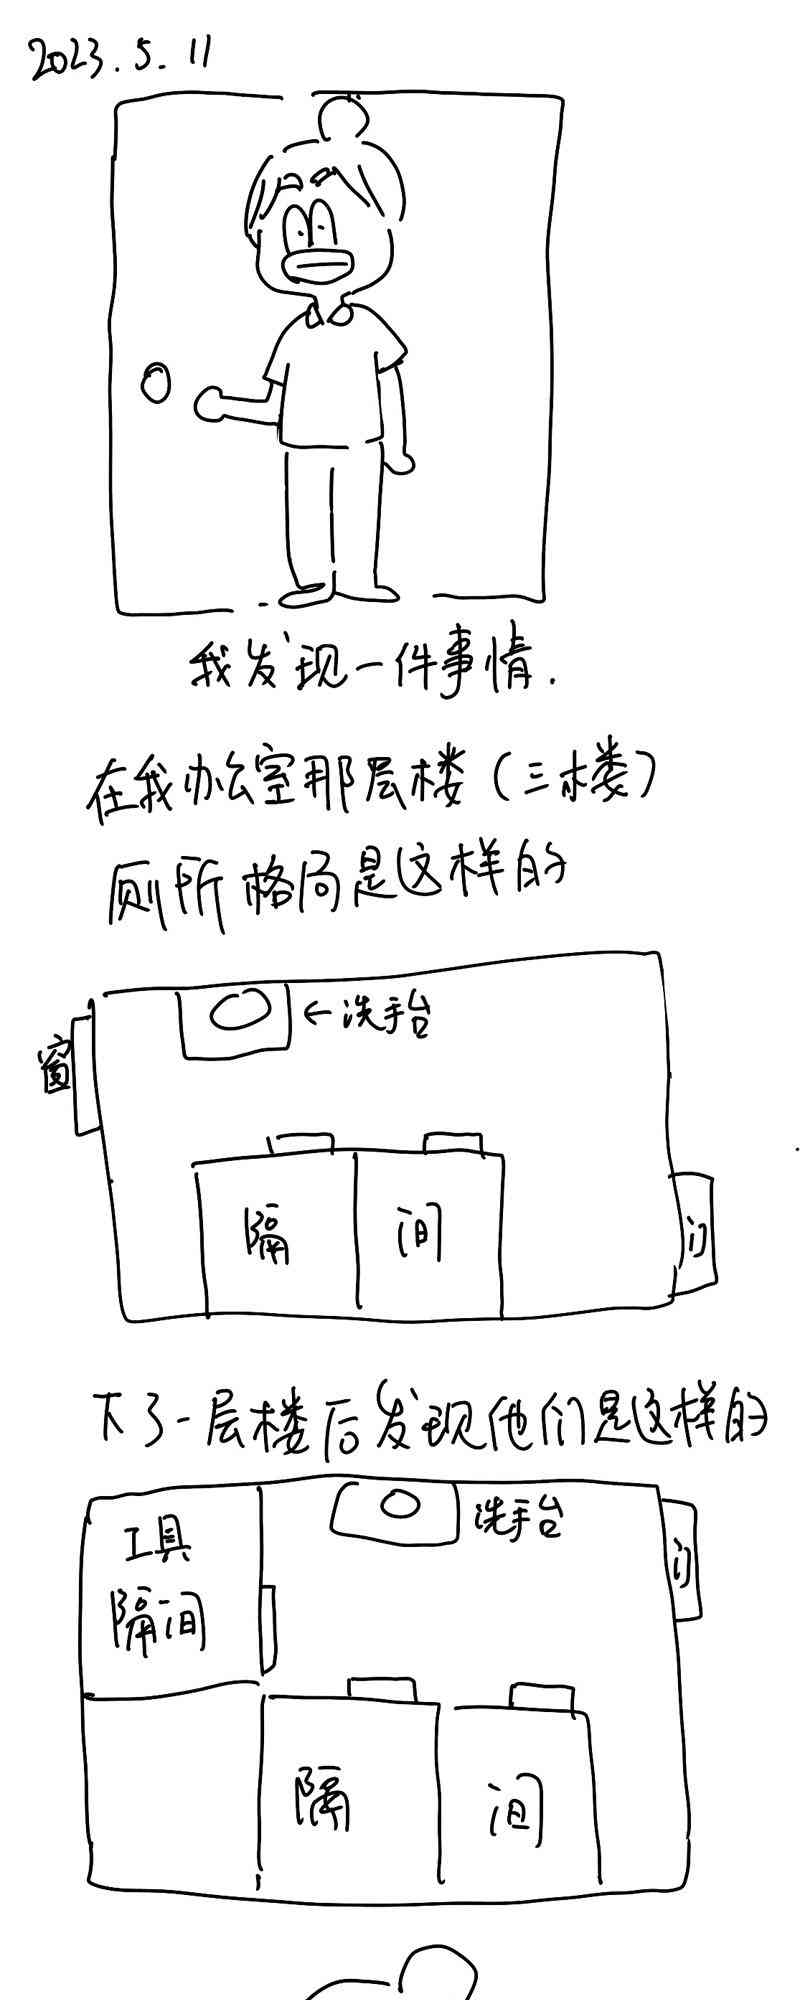 2023.5.11
我发现一件事情.
在我办公室那层楼(三楼)
厕所格局是这样的
←洗手台
窗
隔 间
门
下了一层楼后发现他们是这样的
洗手台
工具
隔间
门
隔 间